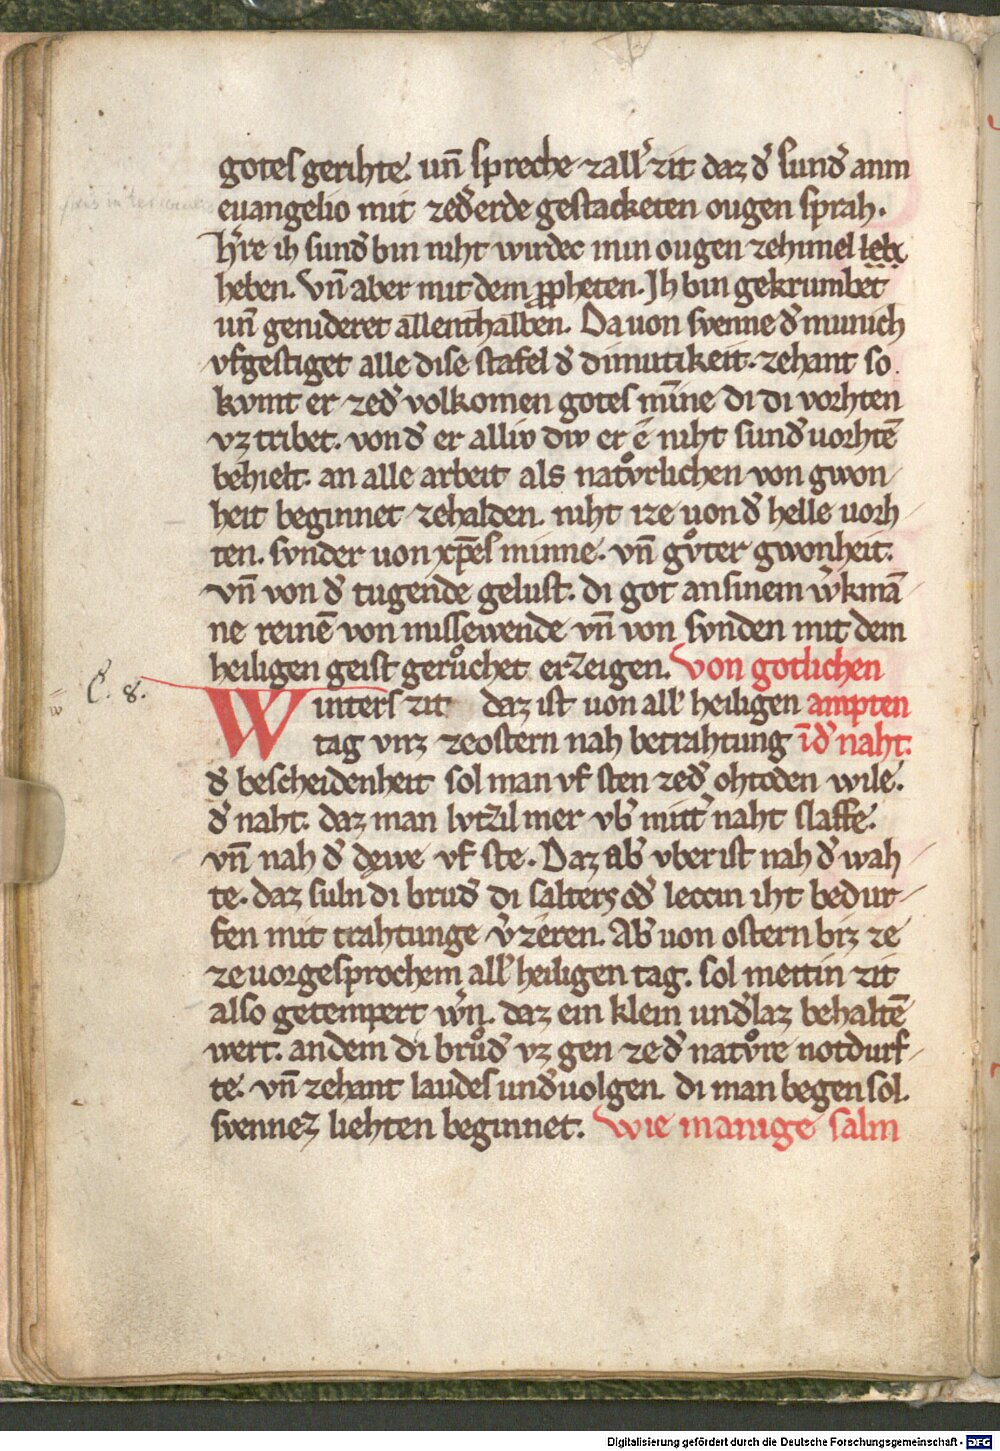 gotes gerihte. un̄ spreche zall᷑ zit daz d᷑ sund᷑ anm
euangelio mit zed᷑ erde gestacketen ougen sprah.
h᷑re ih sund᷑ bin niht wirdec min ougen zehimel
heben. Vn̄ aber mit dem ꝓpheten. Jh bin gekrumbet
un̄ genideret allenthalben. Da uon swenne d᷑ munich
vfgestiget alle dise stafel d᷑ dimutikeit. zehant so
kvmt er zed᷑ volkomen gotes miñe di di vorhten
vz tribet. von d᷑ er alliv div er ê niht sund᷑ uorhtē
behielt. an alle arbeit als natv̊rlichen von gwon
heit beginnet zehalden. niht ize uon d᷑ helle uorh
ten. svnder uon xp̄es minne. vn̄ gv̊ter gwonheit.
vn̄ von d᷑ tugende gelust. di got an sinem w᷑kmā
ne reinē von missewende vn̄ von svnden mit dem
heiligen geist gerůchet erzeigen. Von gotlichen
C. 8.
Winters zit daz ist uon all᷑ heiligen ampten
tag vnz zeostern nah betrahtung īd᷑ naht.
d᷑ bescheidenheit sol man vf sten zed᷑ ohtoden wile.
d᷑ naht. daz man lvtzil mer vb᷑ mitt᷑ naht slaffe.
vn̄ nah d᷑ dęwe vf ste. Daz ab᷑ vber ist nah d᷑ wah
te. daz suln di brud᷑ di salters od᷑ leccin iht bedur
fen mit trahtunge v᷑zeren. Ab᷑ uon ostern biz ze
ze uorgesprochem all᷑ heiligen tag. sol mettin zit
also getempert w᷑n. daz ein klein und᷑laz behaltē
wert. an dem di brůd᷑ vz gen ze d᷑ natv̊re notdurf
te. vn̄ zehant laudes und᷑uolgen. di man begen sol.
swennez liehten beginnet. Wie manige salm
Digitalisierung gefördert durch die Deutsche Forschungsgemeinschaft - DFG